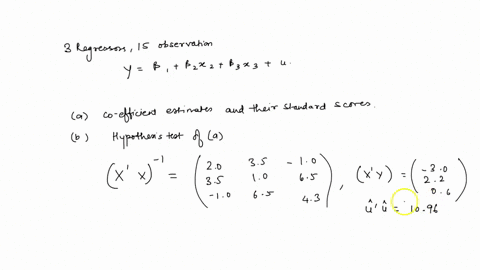 3 Regressors, 15 observation
y = β₁ + β₂x₂ + β₃x₃ + u.
(a) co-efficient estimates and their standard scores.
(b) Hypothesis test of (a)
(X'X)⁻¹ = ( 2.0 3.5 -1.0 ; 3.5 1.0 6.5 ; -1.0 6.5 4.3 ) , (X'Y) = ( -3.0 ; 2.2 ; 0.6 )
û'û = 10.96